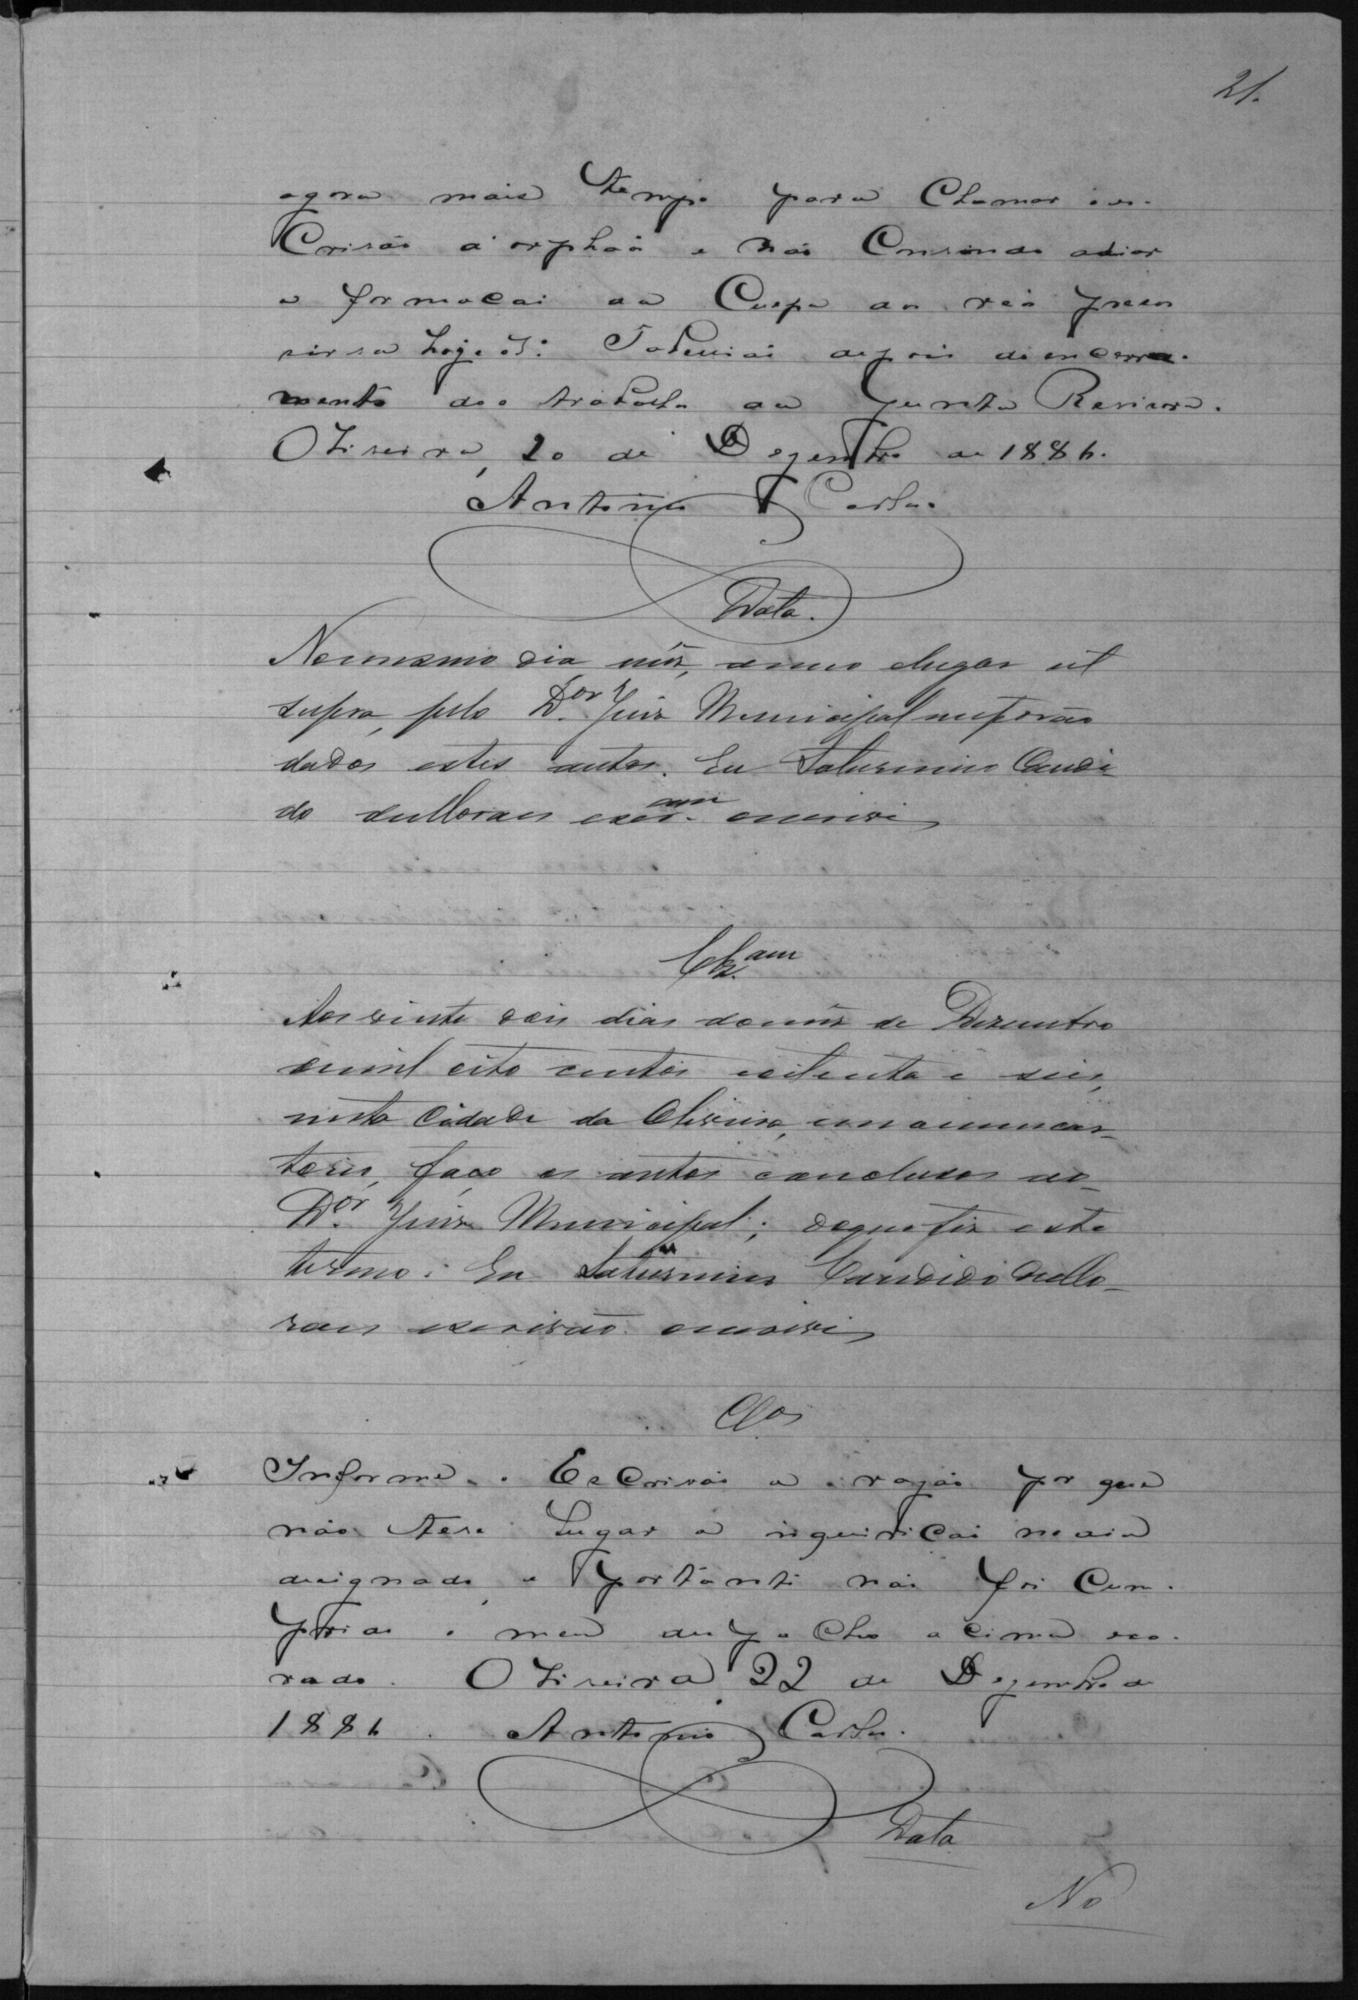 21.
agora mais tempo para chamar o es-
Crivão d'orphãos e não Convindo adiar
a formacai da Culpa do réo preso
hoje depois de encerra-
mento dos trabalhos da Junta Revisora.
Oliveira, 20 de Dezembro de 1886.
Antonio Carlos.
Data.
No mesmo dia, mês, anno elugar ut
supra, pelo D.or Juiz Municipal me forão
dados estes autos. Eu Saturnino Candi
do de Moraes escr.am escrevi
Clz.am
Aos vinte dois dias do mês de Dezembro
de mil oito centos e oitenta e seis,
nesta Cidade da Oliveira, em o meu car-
torio, faço os autos conclusos ao
D.or Juiz Municipal; do que fiz este
termo: Eu Saturnino Candido de Mo-
raes escrivão escrevi
Clos
Informe o Escrivão a razão por que
não teve lugar a inquiricai no dia
designado, e portanto não foi Cum-
prido o meu despacho acima exa-
rado. Oliveira, 22 de Dezembro de
1886. Antonio Carlos.
Data
No